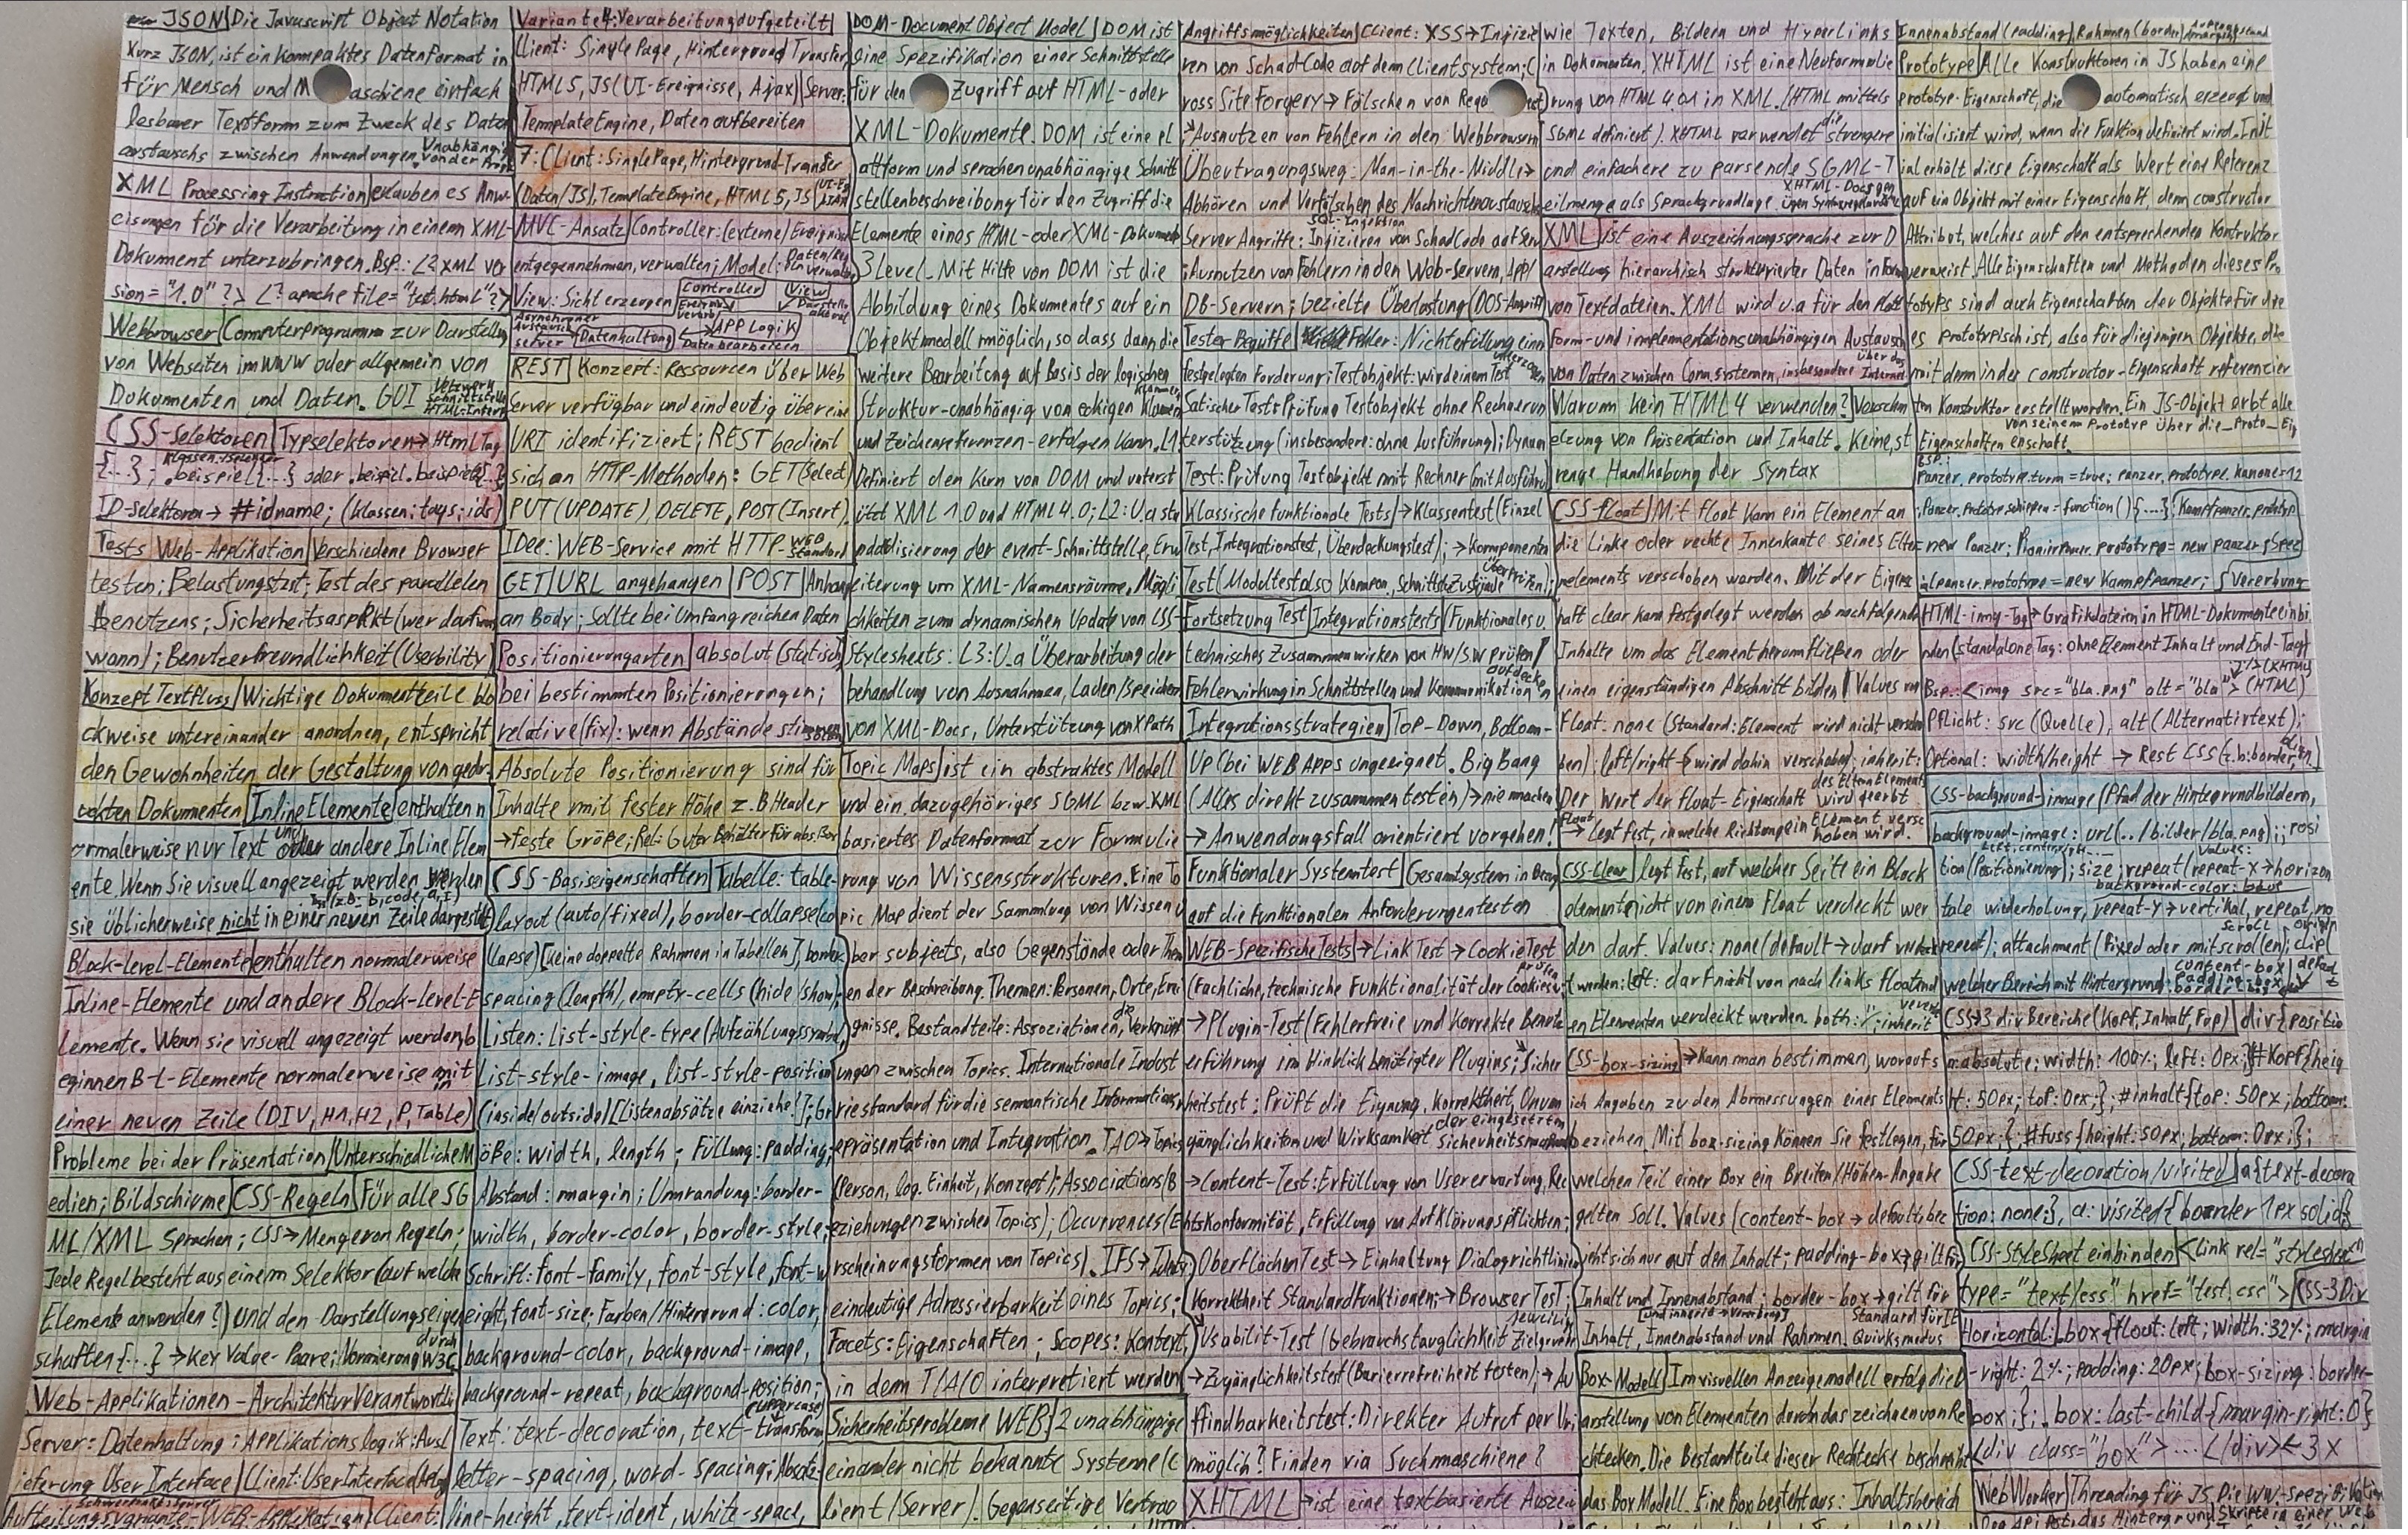 JSON Die Javascript Object Notation
kurz JSON, ist ein kompaktes Datenformat in
für Mensch und Maschiene einfach
lesbarer Textform zum Zweck des Daten
austauschs zwischen Anwendungen. Unabhängig von der Prgr.
XML Processing Instruction erlauben es Anw-
eisungen für die Verarbeitung in einem XML-
Dokument unterzubringen. Bsp.: <? XML ver
sion="1.0" ?> <? apache file="test.html" ?>
Webbrowser Computerprogramm zur Darstellun
von Webseiten im WWW oder allgemein von
Dokumenten und Daten. GUI Netzwerk schnittstelle HTML-Interp
CSS-Selektoren Typselektoren → Html Tag
{...}; Klassen-Selektor .beispiel{...} oder .beispiel.beispiel{...}
ID-Selektoren → #idname; (klassen; tags; ids)
Tests Web-Applikation Verschiedene Browser
testen; Belastungstest; Test des parallelen
benutzens; Sicherheitsaspekt (wer darf was
wann); Benutzerfreundlichkeit (Userbility)
Konzept Textfluss Wichtige Dokumentteile blo
ckweise untereinander anordnen, entspricht
den Gewohnheiten der Gestaltung von gedr-
uckten Dokumenten Inline Elemente enthalten n
ormalerweise nur Text und andere Inline Elem
ente. Wenn Sie visuell angezeigt werden werden
sie üblicherweise nicht in einer neuen Zeile dargestellt (zb. b, code, a, i)
Block-level-Elemente enthalten normalerweise
Inline-Elemente und andere Block-level-E
lemente. Wenn sie visuell angezeigt werden, b
eginnen B-l-Elemente normalerweise mit
einer neuen Zeile (DIV, H1, H2, P, Table)
Probleme bei der Präsentation Unterschiedliche M
edien; Bildschirme CSS-Regeln Für alle SG
ML/XML Sprachen; CSS → Menge von Regeln;
Jede Regel besteht aus einem Selektor (auf welche
Elemente anwenden?) und den Darstellungseigen
schaften {...} → Key Value-Paare; Normierung durch W3C
Web-Applikationen-Architektur Verantwortli
Server: Datenhaltung; Applikationslogik; Ausl
ieferung User Interface Client: User Interface
Aufteilungsvariante-WEB-Applikation Client:
Variante 4: Verarbeitung aufgeteilt
Client: Single Page, Hintergrund Transfer
HTML5, JS (UI-Ereignisse, Ajax) Server:
Template Engine, Daten aufbereiten
7: Client: Single Page, Hintergrund-Transfer
(Daten/JS), Template Engine, HTML5, JS
MVC-Ansatz Controller: (externe) Ereignisse
entgegennehmen, verwalten; Model: Daten/Regeln verwalten
View: Sicht erzeugen Controller View
Asynchroner Austausch server Datenhaltung APP Logik
Daten bearbeiten
REST Konzept: Ressourcen über Web
Server verfügbar und eindeutig über eine
URI identifiziert; REST bedient
sich an HTTP-Methoden: GET (Select)
PUT (UPDATE) DELETE, POST (Insert).
IDee: WEB-Service mit HTTP-WEB Standard
GET URL angehangen POST Anhang
an Body; Sollte bei Umfangreichen Daten
Positionierungarten absolut (statisch)
bei bestimmten Positionierungen;
relative (fix): wenn Abstände stimmen
Absolute Positionierung sind für
Inhalte mit fester Höhe z.B Header
→ feste Größe; Rel: Guter Behälter für abs. Box
CSS-Basiseigenschaften Tabelle: table-
layout (auto/fixed), border-collapse (co
llapse) [keine doppelte Rahmen in Tabellen], border-
spacing (length), empty-cells (hide/show);
Listen: List-style-type (Aufzählungssymbol),
List-style-image, list-style-position
(inside/outside) [Listenabsätze einziehe!]; Gr
öße: width, length; Füllung: padding;
Abstand: margin; Umrandung: border-
width, border-color, border-style;
Schrift: font-family, font-style, font-w
eight, font-size; Farben/Hintergrund: color,
background-color, background-image,
background-repeat, background-position;
Text: text-decoration, text-transform (uppercase)
letter-spacing, word-spacing; Absatz:
line-height, text-ident, white-space,
DOM-Document Object Model DOM ist
eine Spezifikation einer Schnittstelle
für den Zugriff auf HTML-oder
XML-Dokumente. DOM ist eine pl
attform und sprachen unabhängige Schnitt
stellenbeschreibung für den Zugriff die
Elemente eines HTML-oder XML-Dokument
3 Level. Mit Hilfe von DOM ist die
Abbildung eines Dokumentes auf ein
Objektmodell möglich, so dass dann die
weitere Bearbeitung auf Basis der logischen
Struktur-unabhängig von eckigen Klammern
und Zeichenreferenzen-erfolgen kann. L1:
Definiert den Kern von DOM und unterst
ützt XML 1.0 und HTML 4.0; L2: U.a sta
ndardisierung der event-Schnittstelle, Erw
eiterung um XML-Namensräume, Mögli
chkeiten zum dynamischen Update von CSS-
Stylesheets. L3: U.a Überarbeitung der
behandlung von Ausnahmen, Laden/Speichern
von XML-Docs, Unterstützung von XPath
Topic Maps ist ein abstraktes Modell
und ein dazugehöriges SGML bzw. XML
basiertes Datenformat zur Formulie
rung von Wissensstrukturen. Eine To
pic Map dient der Sammlung von Wissen ü
ber subjects, also Gegenstände oder Them
en der Beschreibung. Themen: Personen, Orte, Erei
gnisse. Bestandteile: Associationen, die Verknüpf
ungen zwischen Topics. Internationale Indust
riestandard für die semantische Informationsr
epräsentation und Integration. TAO → Topics
(Person, log. Einheit, Konzept); Associations (B
eziehungen zwischen Topics); Occurences (E
rscheinungsformen von Topics). IFS → Identity
eindeutige Adressierbarkeit eines Topics;
Facets: Eigenschaften; Scopes: Kontext,
in dem T/A/O interpretiert werden
Sicherheitsprobleme WEB 2 unabhängige
einander nicht bekannte Systeme (c
lient/Server). Gegenseitige Vertrau
Angriffsmöglichkeiten Client: XSS → Injizie
ren von Schad-Code auf dem Clientsystem; C
ross Site Forgery → Fälschen von Requ est)
→ Ausnutzen von Fehlern in den Webbrowsern
Übertragungsweg: Man-in-the-Middle →
Abhören und Verfälschen des Nachrichtenaustauschs
Server Angriffe: SQL-Injektion Injizieren von SchadCode auf Serv
; Ausnutzen von Fehlern in den Web-Servern, App/
DB-Servern; Gezielte Überlastung (DOS-Angriff)
Tester Begriffe Fehler: Nichterfüllung einer
festgelegten Forderung; Testobjekt: wird einem Test unterzogen
Satischer Test: Prüfung Testobjekt ohne Rechnerun
terstützung (insbesondere: ohne Ausführung); Dynam
Test: Prüfung Testobjekt mit Rechner (mit Ausführu
Klassische Funktionale Tests → Klassentest (Einzel
Test, Integrationstest, Überdeckungstest); → Komponenten
Test (Modultest also Kompon., Schnittst. Zustände Überprüfen);
Fortsetzung Test Integrationstests (Funktionales u.
technisches Zusammenwirken von HW/SW prüfen/
Fehlerwirkung in Schnittstellen und Kommunikation aufdecken
Integrationsstrategien Top-Down, Bottom-
Up (bei WEB Apps ungeeignet. Big Bang
(Alles direkt zusammen testen) → nie machen
→ Anwendungsfall orientiert vorgehen!
Funktionaler Systemtest Gesamtsystem in Bezug
auf die funktionalen Anforderungen testen
WEB-Spezifische Tests → Link Test → Cookie Test
(Fachliche, technische Funktionalität der Cookies prüfen
→ Plugin-Test (Fehlerfreie und korrekte Benutz
erführung im Hinblick benötigter Plugins; → Sicher
heitstest: Prüft die Eignung, Korrektheit, Unum
gänglichkeiten und Wirksamkeit der eingesetzten Sicherheitsmassnahmen
→ Content-Test: Erfüllung von Usererwartung, Rec
htskonformität, Erfüllung von Aufklärungspflichten;
Oberflächen Test → Einhaltung Dialogrichtlinien
Korrektheit Standardfunktionen; → Browser Test;
Usabilit-Test (Gebrauchstauglichkeit jeweilig Zielgruppe
→ Zugänglichkeitstest (Barierrefreiheit testen); → Au
ffindbarkeitstest: Direkter Aufruf per Uri
möglich? Finden via Suchmaschiene?
XHTML → ist eine textbasierte Auszei
wie Texten, Bildern und Hyperlinks
in Dokumenten. XHTML ist eine Neuformulie
rung von HTML 4.01 in XML. (HTML mittels
SGML definiert). XHTML verwendet die strengere
und einfachere zu parsende SGML-T
eilmenge als Sprachgrundlage. XHTML-Docs gen
XML ist eine Auszeichnungssprache zur D
arstellung hierarchisch strukturierter Daten in Form
von Textdateien. XML wird u.a für den Platt
form-und implementationsunabhängigen Austausch
von Daten zwischen Comp.systemen, insbesondere über das Internet
Warum kein HTML4 verwenden? Verschm
elzung von Präsentation und Inhalt. Keine st
renge Handhabung der Syntax
CSS-float Mit float kann ein Element an
die Linke oder rechte Innenkante seines Elter
nelements verschoben werden. Mit der Eigens
haft clear kann festgelegt werden ob nachfolgende
Inhalte um das Element herumfließen oder
einen eigenständigen Abschnitt bilden Values von
Float: none (Standard: Element wird nicht verscho
ben); left/right → wird dahin verschoben; inherit:
Der Wert der float-Eigenschaft des Eltern Element wird geerbt
float → Legt fest, in welche Richtung ein Element versc hoben wird.
CSS-Clear legt fest, auf welcher Seite ein Block
element nicht von einem Float verdeckt wer
den darf. Values: none (default → darf verdeckt
werden; left: darf nicht von nach links floatend
en Elementen verdeckt werden. both: "; inherit
CSS-box-sizing → Kann man bestimmen, worauf s
ich Angaben zu den Abmessungen eines Elements
beziehen. Mit box-sizing können Sie festlegen, für
welchen Teil einer Box ein Breiten/Höhen-Angabe
gelten soll. Values (content-box → default, bez
ieht sich nur auf den Inhalt; padding-box → gilt für
Inhalt und Innenabstand; border-box → gilt für
Inhalt, Innenabstand und Rahmen. Standard für IE Quirksmodus
Box-Modell Im visuellen Anzeigemodell erfolg die D
arstellung von Elementen durch das zeichnen von Re
chtecken. Die Bestandteile dieser Rechtecke beschreibt
das Box Modell. Eine Box besteht aus: Inhaltsbereich
Innenabstand (padding) Rahmen (border) Außenabstand (margin)
Prototype Alle Konstruktoren in JS haben eine
prototype-Eigenschaft, die automatisch erzeugt und
initialisiert wird, wenn die Funktion definiert wird. Init
ial erhält diese Eigenschaft als Wert eine Referenz
auf ein Objekt mit einer Eigenschaft, dem constructor
Attribut, welches auf den entsprechenden Kontruktor
verweist. Alle Eigenschaften und Methoden dieses Pro
totyps sind auch Eigenschaften der Objekte für die
es prototypisch ist, also für diejenigen Objekte, die
mit dem in der constructor-Eigenschaft referenzier
ten Konstruktor erstellt worden. Ein JS-Objekt erbt alle
Eigenschaften von seinem Prototyp über die _Proto_ Eig enschaft.
BSP.:
Panzer.prototype.turm=true; panzer.prototype.kanone=12
;Panzer.prototype.schiessen=function(){...}; Kampfpanzer.prototyp
=new Panzer; Pionierpanzer.prototype=new panzer; Spez
ialpanzer.prototype=new Kampfpanzer; } Vererbung
HTML-img-Tag → Grafikdateien in HTML-Dokumente einbi
nden (standalone Tag: ohne Element Inhalt und End-Tag)
Bsp: <img src="bla.png" alt="bla"> (HTML) "/> (XHTML)
Pflicht: src (Quelle), alt (Alternativtext);
Optional: width/height → Rest CSS (z.b: border, align)
CSS-background-image (Pfad der Hintergrundbildern,
background-image: url(../bilder/bla.png);; posi
tion (Positionierung); size; repeat (Values: repeat-x → horizon
tale wiederholung, repeat-y → vertikal, repeat, no
repeat); attachment (fixed oder mitscrollen); clip
welcher Bereich mit Hintergrund: content-box
CSS-3 div Bereiche (Kopf, Inhalt, Fuß) div{positio
n:absolute; width: 100%; left: 0px;} #Kopf{heig
ht: 50px; top: 0px;} #inhalt{top: 50px; bottom:
50px;} #fuss{height: 50px; bottom: 0px;};
CSS-text-decoration/visited a{text-decora
tion: none;}, a: visited{boarder 1px solid}
CSS-StyleSheet einbinden <link rel="stylesheet"
type="text/css" href="test.css"> CSS-3 Div
Horizontal: .box{float: left; width: 32%; margin
-right: 2%; padding: 20px; box-sizing: border-
box;}; .box: last-child{margin-right: 0}
<div class="box">.... </div> ← 3 x
WebWorker Threading für JS. Die WW-Spezifikation